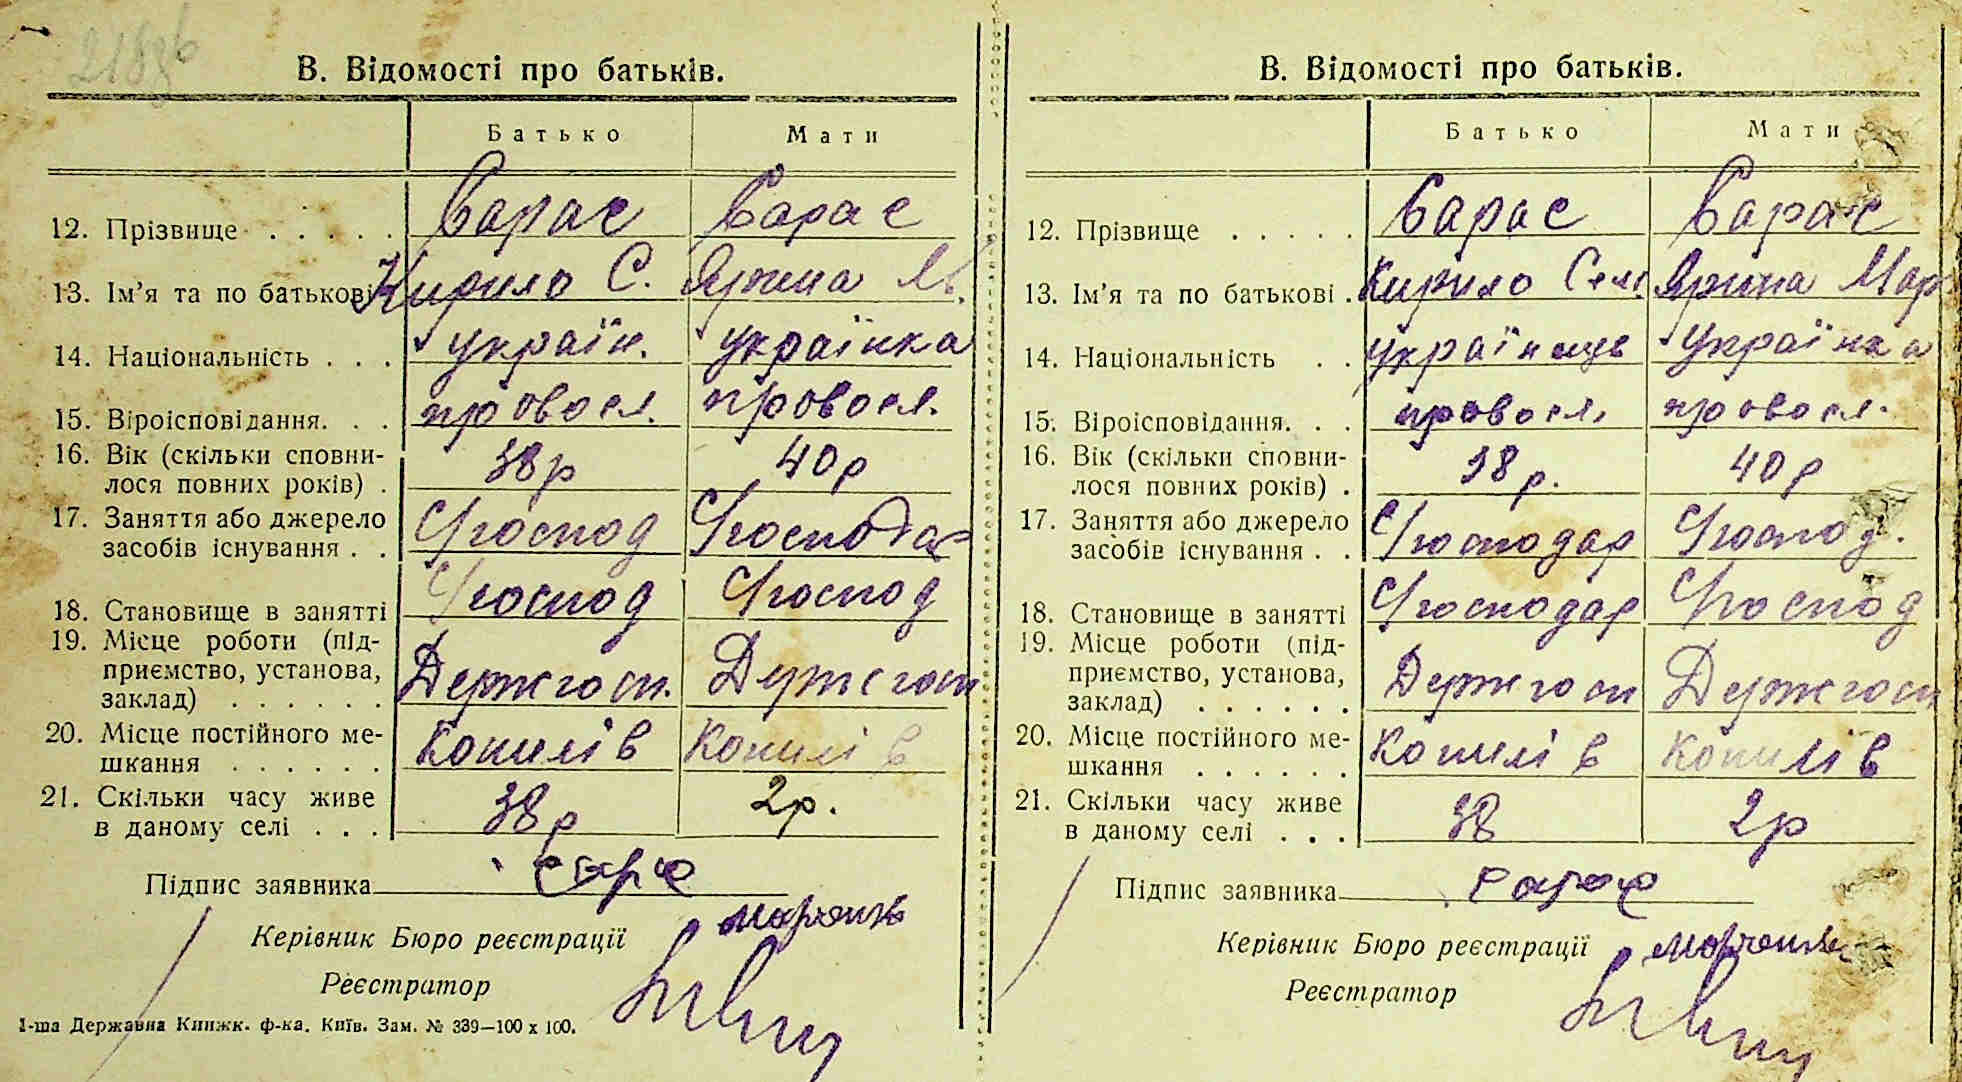 218
В. Відомості про батьків.
Батько Мати
12. Прізвище . . . . . Сарас Сарас
13. Ім'я та по батькові Кирило С. Ярина М.
14. Національність . . . україн. українка
15. Віроісповідання. . . провосл. провосл.
16. Вік (скільки сповни-
лося повних років) . 38р 40р
17. Заняття або джерело
засобів існування . . Господ Господар
18. Становище в занятті Господ Господ
19. Місце роботи (під-
приємство, установа,
заклад) . . . . . . Держгосп. Держгосп
20. Місце постійного ме-
шкання . . . . . . Копилів Копилів
21. Скільки часу живе
в даному селі . . . 38р 2р.
Підпис заявника
Керівник Бюро реєстрації Марченко
Реєстратор
1-ша Державна Книжк. ф-ка. Київ. Зам. № 339—100 х 100.
В. Відомості про батьків.
Батько Мати
12. Прізвище . . . . . Сарас Сарас
13. Ім'я та по батькові . Кирило Сем. Ярина Мар
14. Національність . . українець Українка
15. Віроісповідання. . . провосл. провосл.
16. Вік (скільки сповни-
лося повних років) . 38р. 40р
17. Заняття або джерело
засобів існування . . Господар Господ.
18. Становище в занятті Господар Господ
19. Місце роботи (під-
приємство, установа,
заклад) . . . . . . Держгосп Держгосп
20. Місце постійного ме-
шкання . . . . . . Копилів Копилів
21. Скільки часу живе
в даному селі . . . 38 2р
Підпис заявника Сарас
Керівник Бюро реєстрації Марченко
Реєстратор